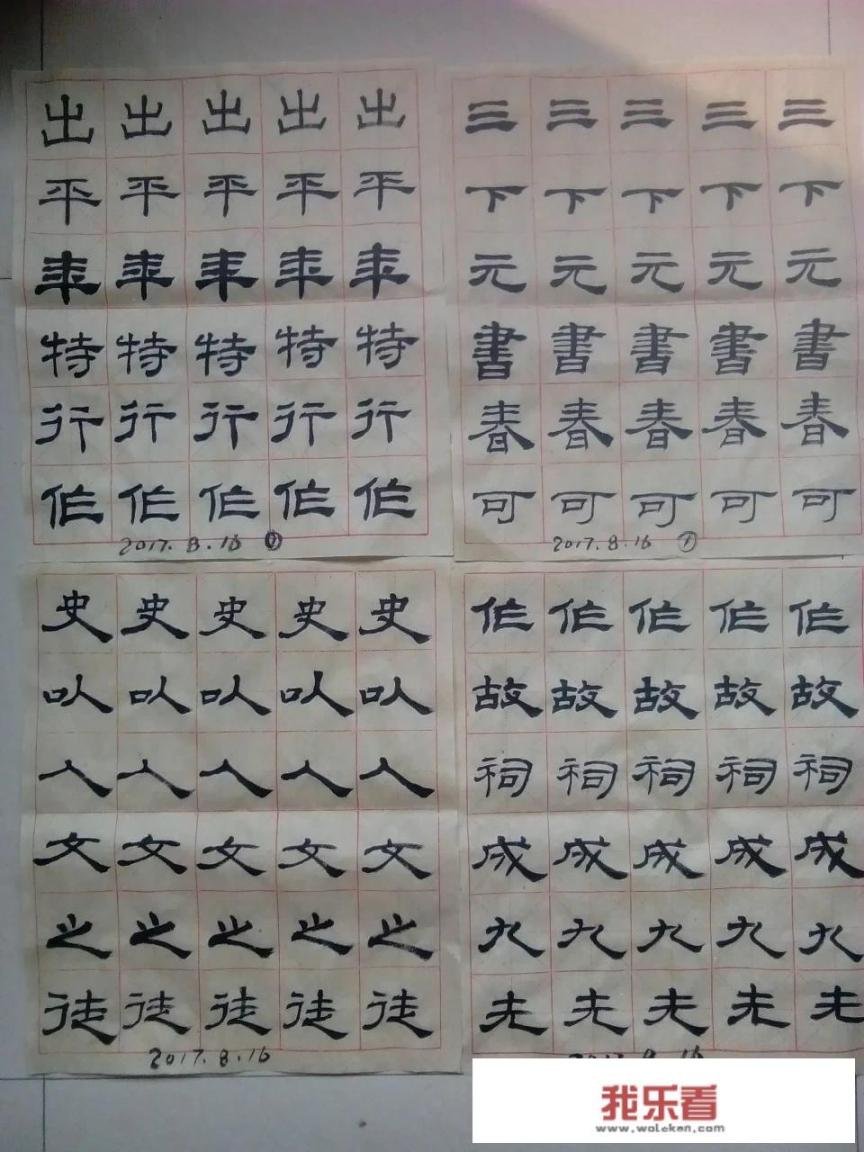 出出出出出
平平平平平
年年年年年
特特特特特
行行行行行
作作作作作
2017.8.16 ②
三三三三三
下下下下下
元元元元元
書書書書書
春春春春春
可可可可可
2017.8.16 ①
史史史史史
以以以以以
人人人人人
文文文文文
之之之之之
徒徒徒徒徒
2017.8.16
作作作作作
故故故故故
祠祠祠祠祠
成成成成成
九九九九九
先先先先先
2017.8.16
我乐看
www.woleken.com